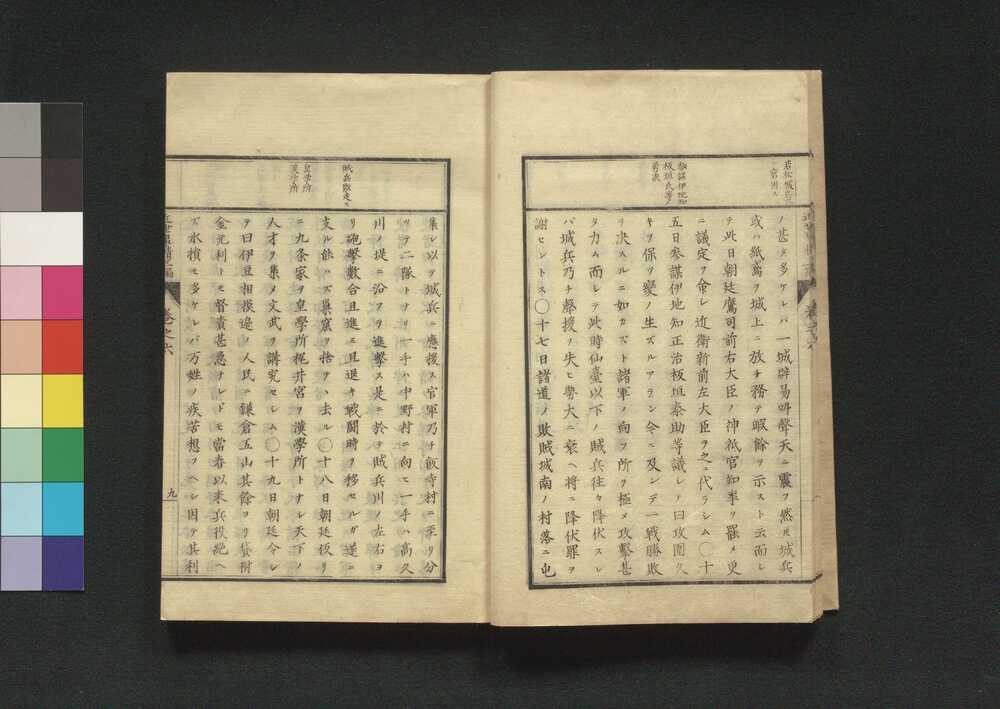 若松城兵
官困ス
ノ甚タ多ケレバ一城辟易吶聲天ニ震フ然圧城兵
或ハ紙鳶ヲ城上ニ放チ務テ暇餘ヲ示スト云而レ
テ此日朝廷鷹司前右大臣ノ神祇官知事ヲ罷メ更
ニ議定ヲ命レ近衛新前左大臣ヲ之ニ代ラシム〇十
五日参謀伊地知正治板垣泰助等議レテ曰攻圍久
キヲ保ツ變ノ生ズルアラン今ニ及ンデ一戦勝敗
ヲ决スルニ如カズト諸軍ノ向フ所ヲ極メ攻撃甚
タカム而レテ此時仙臺以下ノ賊兵往々降伏スレ
バ城兵乃チ聲援ヲ失ヒ勢大ニ衰ヘ将ニ降伏罪ヲ
謝セントス〇十七日諸道ノ敗賊城南ノ村落ニ屯
参謀伊地知
板垣氏等ノ
勇决
集レ以ツ城兵ニ應援ス官軍乃チ飯寺村ニ至リ分
ツヲ二隊トナリ一手ハ中野村ニ向ヒ一手ハ高久
川ノ堤ニ沿フヲ進撃ス是ニ於テ賊兵川ノ左右ヨ
リ砲撃數合且進ミ且退キ戦鬪時ヲ移セルガ遂ニ
支ル能ハズ巣窟ヲ捨ヲヽ去ル〇十八日朝廷仮リ
ニ九条家ヲ皇學所梶井宮ヲ漢學所トナレ天下ノ
人才ヲ集メ文武ヲ講究セレム〇十九日朝廷令レ
ヲ曰伊豆相摸邉ノ人民ニ鎌倉五山其餘ヨリ貸附
金元利トモ督責甚急ナレドモ當春以来兵役絶ヘ
ズ水損モ多ケレバ万姓ノ疾苦想フヘレ因テ其利
賊兵敗走ス
皇学所
漢学所
巻之六
九